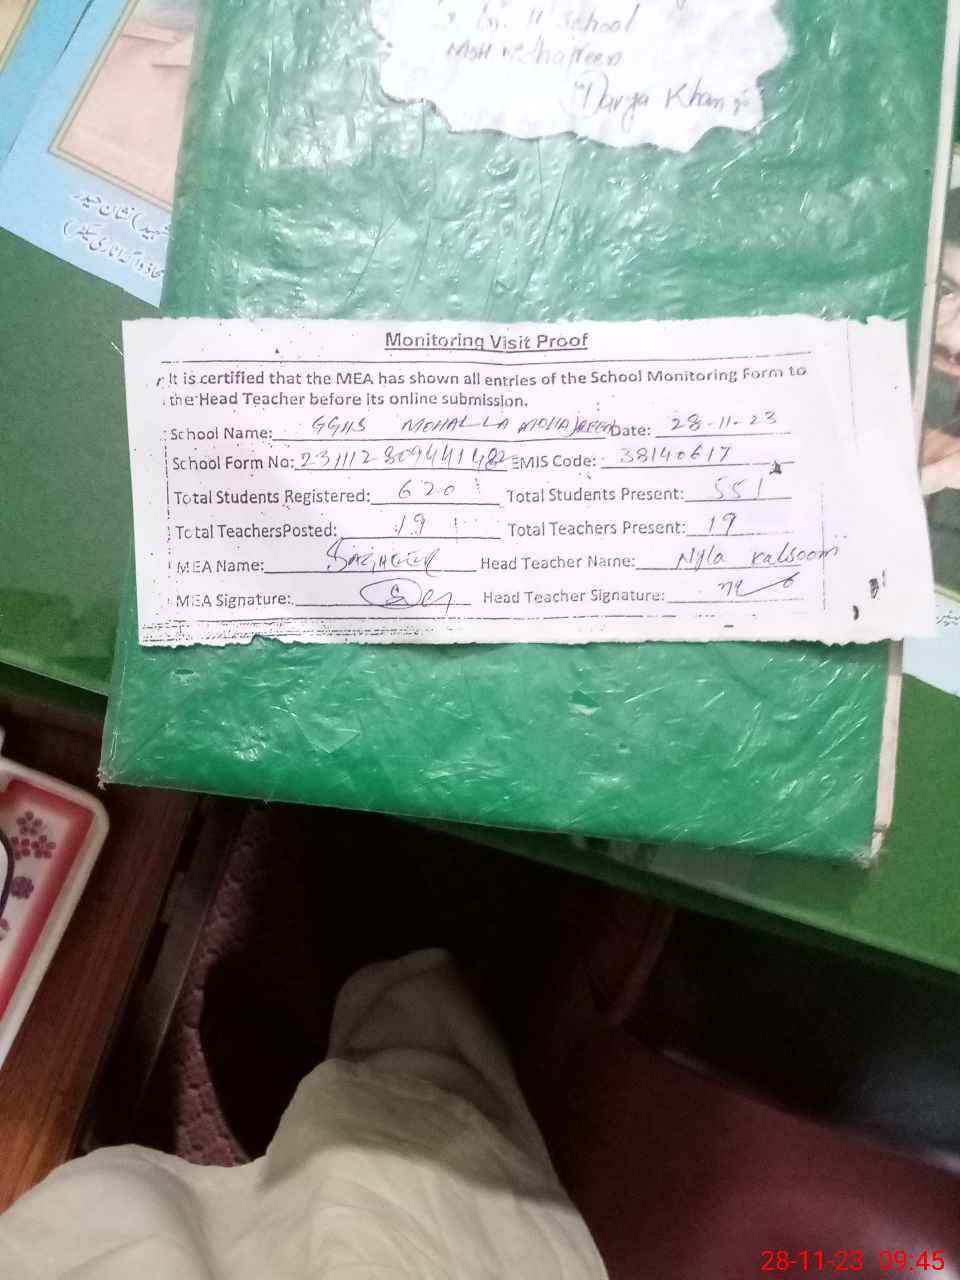 School
Darya Khan
Monitoring Visit Proof
It is certified that the MEA has shown all entries of the School Monitoring Form to
the Head Teacher before its online submission.
School Name: GGHS MOHALLA MOHAJREEN Date: 28-11-23
School Form No: EMIS Code: 38140617
Total Students Registered: 620 Total Students Present: 551
Total TeachersPosted: 19 Total Teachers Present: 19
MEA Name: Head Teacher Name: Nyla Kalsoom
MEA Signature: Head Teacher Signature:
28-11-23 09:45